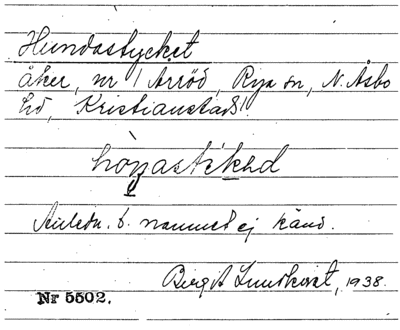 Hundastycket
åker, nr 1 Arröd, Rya sn, N. Åsbo
hd, Kristianstads l.
Anledn. t. namnet ej känd.
Birgit Lundkvist, 1938.
Nr 5502.